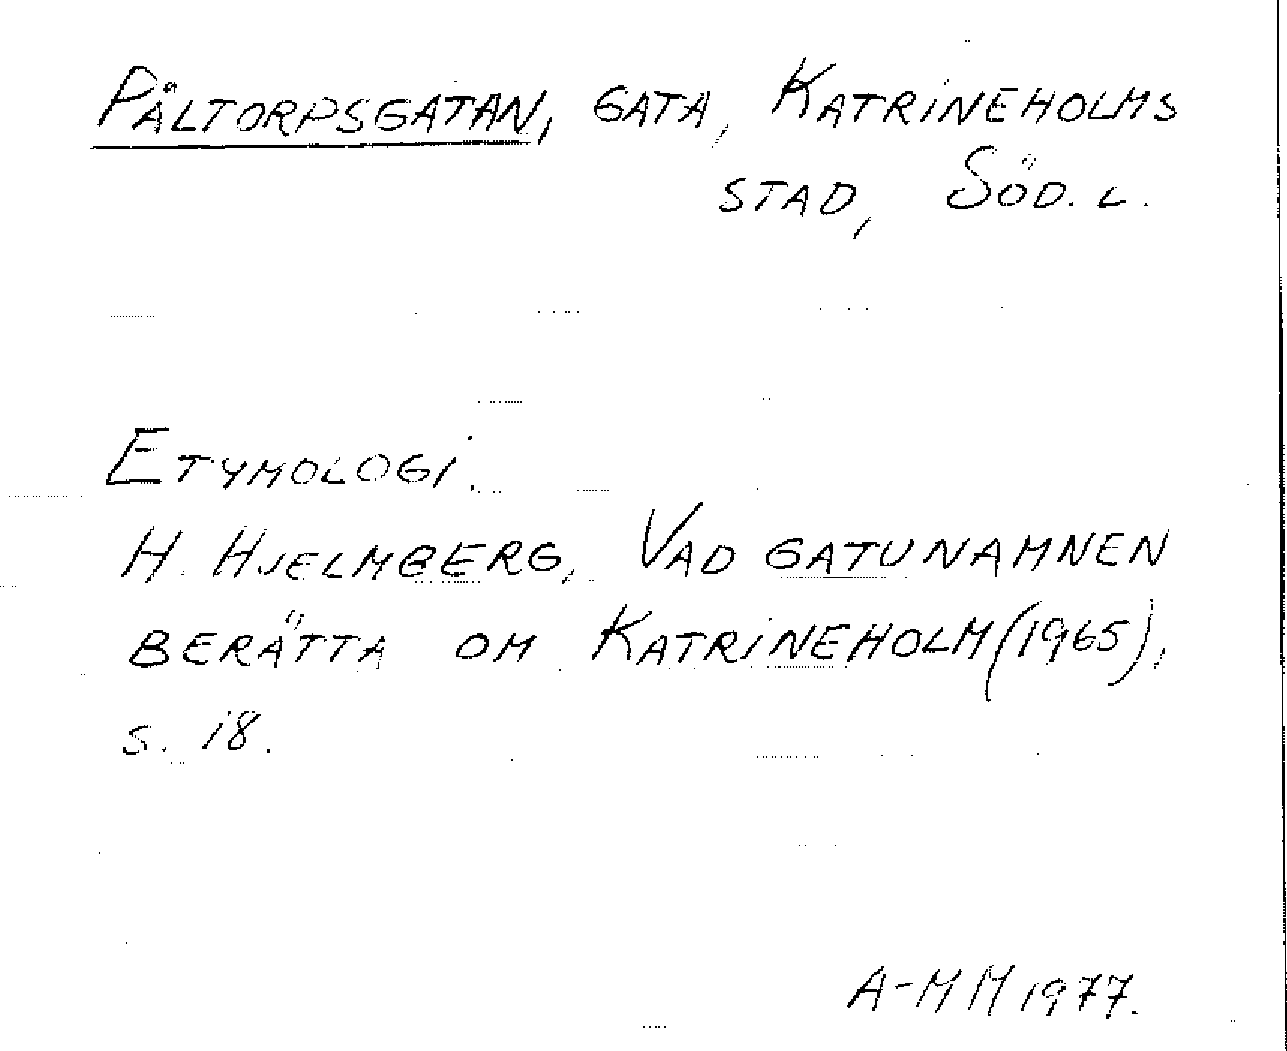 PÅLTORPSGATAN, GATA, KATRINEHOLMS
STAD, SÖD. L.
ETYMOLOGI.
H. HJELMBERG, VAD GATUNAMNEN
BERÄTTA OM KATRINEHOLM (1965),
S. 18.
A-MM 1977.